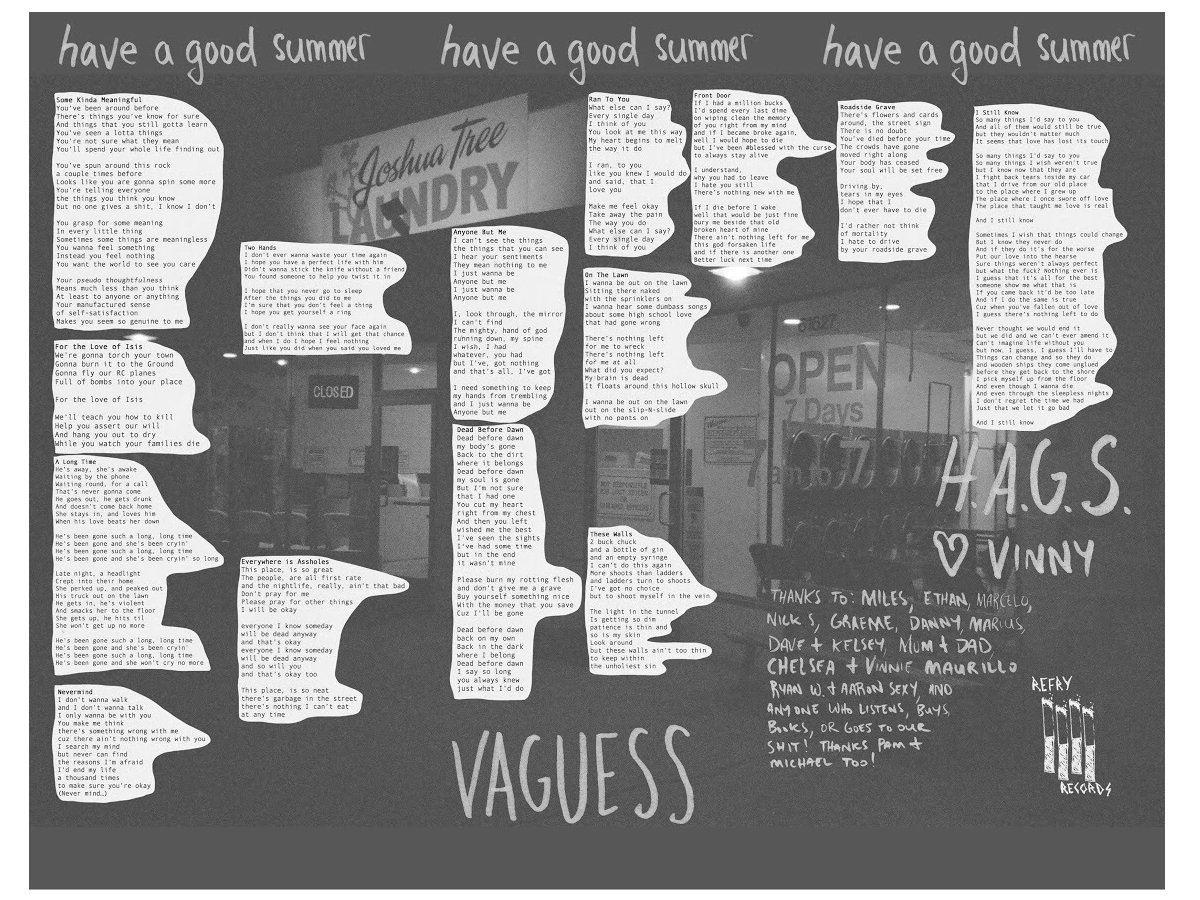 have a good summer
have a good summer
have a good summer
Some Kinda Meaningful
You've been around before
There's things you've know for sure
And things that you still gotta learn
You've seen a lotta things
You're not sure what they mean
You'll spend your whole life finding out
You've spun around this rock
a couple times before
Looks like you are gonna spin some more
You're telling everyone
the things you think you know
but no one gives a shit, I know I don't
You grasp for some meaning
In every little thing
Sometimes some things are meaningless
You wanna feel something
Instead you feel nothing
You want the world to see you care
Your pseudo thoughtfulness
Means much less than you think
At least to anyone or anything
Your manufactured sense
of self-satisfaction
Makes you seem so genuine to me
For the Love of Isis
We're gonna torch your town
Gonna burn it to the Ground
Gonna fly our RC planes
Full of bombs into your place
For the love of Isis
We'll teach you how to kill
Help you assert our will
And hang you out to dry
While you watch your families die
A Long Time
He's away, she's awake
Waiting by the phone
Waiting round, for a call
That's never gonna come
He goes out, he gets drunk
And doesn't come back home
She stays in, and loves him
When his love beats her down
He's been gone such a long, long time
He's been gone and she's been cryin'
He's been gone such a long, long time
He's been gone and she's been cryin' so long
Late night, a headlight
Crept into their home
She perked up, and peaked out
His truck out on the lawn
He gets in, he's violent
And smacks her to the floor
She gets up, he hits til
She won't get up no more
He's been gone such a long, long time
He's been gone and she's been cryin'
He's been gone such a long, long time
He's been gone and she won't cry no more
Nevermind
I don't wanna walk
and I don't wanna talk
I only wanna be with you
You make me think
there's something wrong with me
cuz there ain't nothing wrong with you
I search my mind
but never can find
the reasons I'm afraid
I'd end my life
a thousand times
to make sure you're okay
(Never mind…)
Two Hands
I don't ever wanna waste your time again
I hope you have a perfect life with him
Didn't wanna stick the knife without a friend
You found someone to help you twist it in
I hope that you never go to sleep
After the things you did to me
I'm sure that you don't feel a thing
I hope you get yourself a ring
I don't really wanna see your face again
but I don't think that I will get that chance
and when I do I hope I feel nothing
Just like you did when you said you loved me
Everywhere is Assholes
This place, is so great
The people, are all first rate
and the nightlife, really, ain't that bad
Don't pray for me
Please pray for other things
I will be okay
everyone I know someday
will be dead anyway
and that's okay
everyone I know someday
will be dead anyway
and so will you
and that's okay too
This place, is so neat
there's garbage in the street
there's nothing I can't eat
at any time
Joshua Tree
LAUNDRY
CLOSED
Anyone But Me
I can't see the things
the things that you can see
I hear your sentiments
They mean nothing to me
I just wanna be
Anyone but me
I just wanna be
Anyone but me
I, look through, the mirror
I can't find
The mighty, hand of god
running down, my spine
I wish, I had
whatever, you had
but I've, got nothing
and that's all, I've got
I need something to keep
my hands from trembling
and I just wanna be
Anyone but me
Dead Before Dawn
Dead before dawn
my body's gone
Back to the dirt
where it belongs
Dead before dawn
my soul is gone
But I'm not sure
that I had one
You cut my heart
right from my chest
And then you left
wished me the best
I've seen the sights
I've had some time
but in the end
it wasn't mine
Please burn my rotting flesh
and don't give me a grave
Buy yourself something nice
With the money that you save
Cuz I'll be gone
Dead before dawn
back on my own
Back in the dark
where I belong
Dead before dawn
I say so long
you always knew
just what I'd do
VAGUESS
Ran To You
What else can I say?
Every single day
I think of you
You look at me this way
My heart begins to melt
the way it do
I ran, to you
like you knew I would do
and said, that I
love you
Make me feel okay
Take away the pain
The way you do
What else can I say?
Every single day
I think of you
On The Lawn
I wanna be out on the lawn
Sitting there naked
with the sprinklers on
I wanna hear some dumbass songs
about some high school love
that had gone wrong
There's nothing left
for me to wreck
There's nothing left
for me at all
What did you expect?
My brain is dead
It floats around this hollow skull
I wanna be out on the lawn
out on the slip-N-slide
with no pants on
These Walls
2 buck chuck
and a bottle of gin
and an empty syringe
I can't do this again
More shoots than ladders
and ladders turn to shoots
I've got no choice
but to shoot myself in the vein
The light in the tunnel
Is getting so dim
patience is thin and
so is my skin
Look around
but these walls ain't too thin
to keep within
the unholiest sin
Front Door
If I had a million bucks
I'd spend every last dime
on wiping clean the memory
of you right from my mind
and if I became broke again,
well I would hope to die
but I've been #blessed with the curse
to always stay alive
I understand,
why you had to leave
I hate you still
There's nothing new with me
If I die before I wake
well that would be just fine
bury me beside that old
broken heart of mine
There ain't nothing left for me
this god forsaken life
and if there is another one
Better luck next time
Roadside Grave
There's flowers and cards
around, the street sign
There is no doubt
You've died before your time
The crowds have gone
moved right along
Your body has ceased
Your soul will be set free
Driving by,
tears in my eyes
I hope that I
don't ever have to die
I'd rather not think
of mortality
I hate to drive
by your roadside grave
I Still Know
So many things I'd say to you
And all of them would still be true
but they wouldn't matter much
It seems that love has lost its touch
So many things I'd say to you
So many things I wish weren't true
but I know now that they are
I fight back tears inside my car
that I drive from our old place
to the place where I grew up
The place where I once swore off love
The place that taught me love is real
And I still know
Sometimes I wish that things could change
But I know they never do
And if they do it's for the worse
Put our love into the hearse
Sure things weren't always perfect
but what the fuck? Nothing ever is
I guess that it's all for the best
someone show me what that is
If you came back it'd be too late
And if I do the same is true
Cuz when you've fallen out of love
I guess there's nothing left to do
Never thought we would end it
but we did and we can't ever amend it
Can't imagine life without you
but now, I guess, I guess I'll have to
Things can change and so they do
and wooden ships they come unglued
before they get back to the shore
I pick myself up from the floor
And even though I wanna die
And even through the sleepless nights
I don't regret the time we had
Just that we let it go bad
And I still know
OPEN
7 Days
NOT RESPONSIBLE
H.A.G.S.
♡ VINNY
THANKS TO: MILES, ETHAN, MARCELO,
NICK S, GRAEME, DANNY, MARIUS
DAVE + KELSEY, MUM + DAD
CHELSEA + VINNIE MAURILLO
RYAN W. + AARON SEXY, AND
ANYONE WHO LISTENS, BUYS,
BOOKS, OR GOES TO OUR
SHIT! THANKS PAM +
MICHAEL TOO!
REFRY
RECORDS